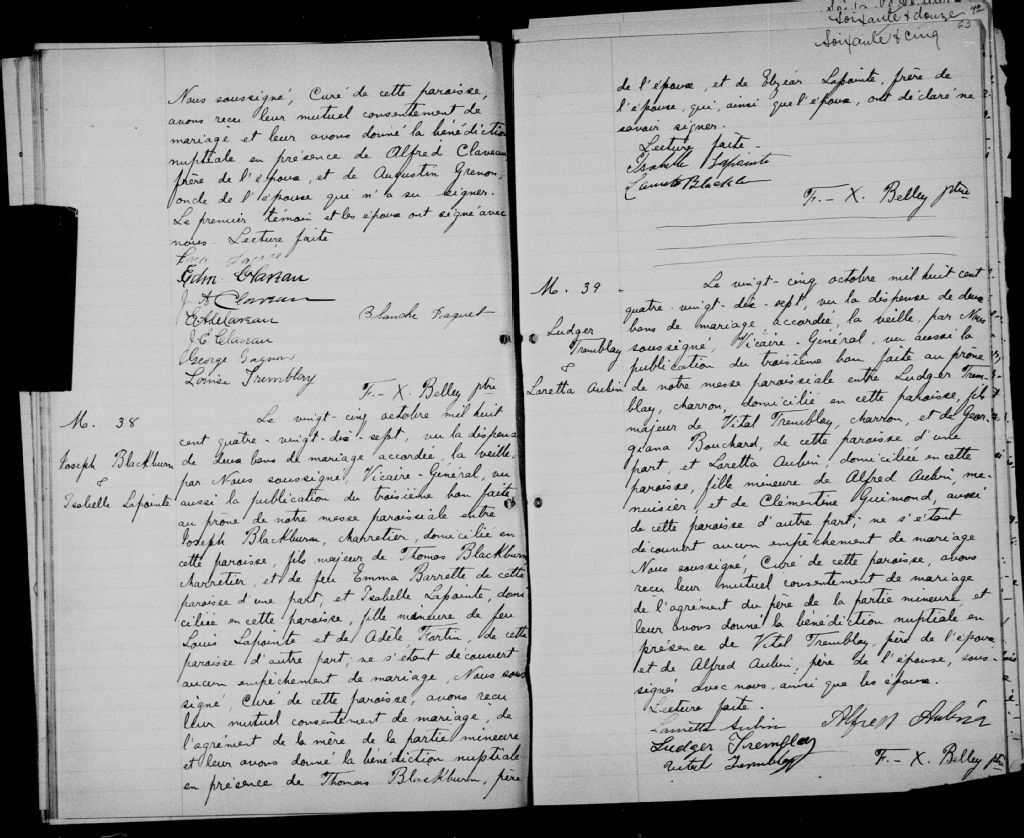 Nous soussigné, Curé de cette paroisse,
avons reçu leur mutuel consentement de
mariage et leur avons donné la bénédiction
nuptiale en présence de Alfred Claveau
frère de l'époux, et de Augustin Grenon,
oncle de l'épouse qui n'a su signer.
Le premier témoin et les époux ont signé avec
nous. Lecture faite
Edm. Claveau
J A Claveau
Blanche Paquet
J. E. Claveau
George Gagnon
Louise Tremblay
F.-X. Belley ptre
M. 38
Joseph Blackburn
&
Isabelle Lapointe
Le vingt-cinq octobre mil huit
cent quatre-vingt-dix-sept, vu la dispense
de deux bans de mariage accordée, la veille,
par Nous soussigné, Vicaire-Général, vu
aussi la publication du troisième ban faite
au prône de notre messe paroissiale entre
Joseph Blackburn, charretier, domicilié en
cette paroisse, fils majeur de Thomas Blackburn
charretier, et de feu Emma Barrette de cette
paroisse d'une part, et Isabelle Lapointe, domi
ciliée en cette paroisse, fille mineure de feu
Louis Lapointe et de Adèle Fortin, de cette
paroisse d'autre part; ne s'étant découvert
aucun empêchement de mariage, Nous sous
signé, Curé de cette paroisse, avons reçu
leur mutuel consentement de mariage, de
l'agrément de la mère de la partie mineure
et leur avons donné la bénédiction nuptiale
en présence de Thomas Blackburn, père
72
Soixante & douze
63
Soixante & cinq
de l'époux, et de Elzéar Lapointe, frère de
l'épouse, qui, ainsi que l'époux, ont déclaré ne
savoir signer.
Lecture faite.
Lapointe
Blackburn
F.-X. Belley ptre
M. 39
Ludger
Tremblay
&
Laretta Aubin
Le vingt-cinq octobre mil huit cent
quatre-vingt-dix-sept, vu la dispense de deux
bans de mariage, accordée, la veille, par Nous
soussigné, Vicaire-Général, vu aussi la
publication du troisième ban faite au prône
de notre messe paroissiale entre Ludger Trem-
blay, charron, domicilié en cette paroisse, fils
majeur de Vital Tremblay, charron, et de Geor-
giana Bouchard, de cette paroisse d'une
part, et Laretta Aubin, domiciliée en cette
paroisse, fille mineure de Alfred Aubin, me-
nuisier, et de Clémentine Guimond, aussi
de cette paroisse d'autre part; ne s'étant
découvert aucun empêchement de mariage
Nous soussigné, Curé de cette paroisse, avons
reçu leur mutuel consentement de mariage
de l'agrément du père de la partie mineure et
leur avons donné la bénédiction nuptiale en
présence de Vital Tremblay, père de l'époux
et de Alfred Aubin, père de l'épouse, sous-
signés avec nous, ainsi que les époux.
Lecture faite.
Lauretta Aubin
Alfred Aubin
Ludger Tremblay
Vital Tremblay
F.-X. Belley ptre